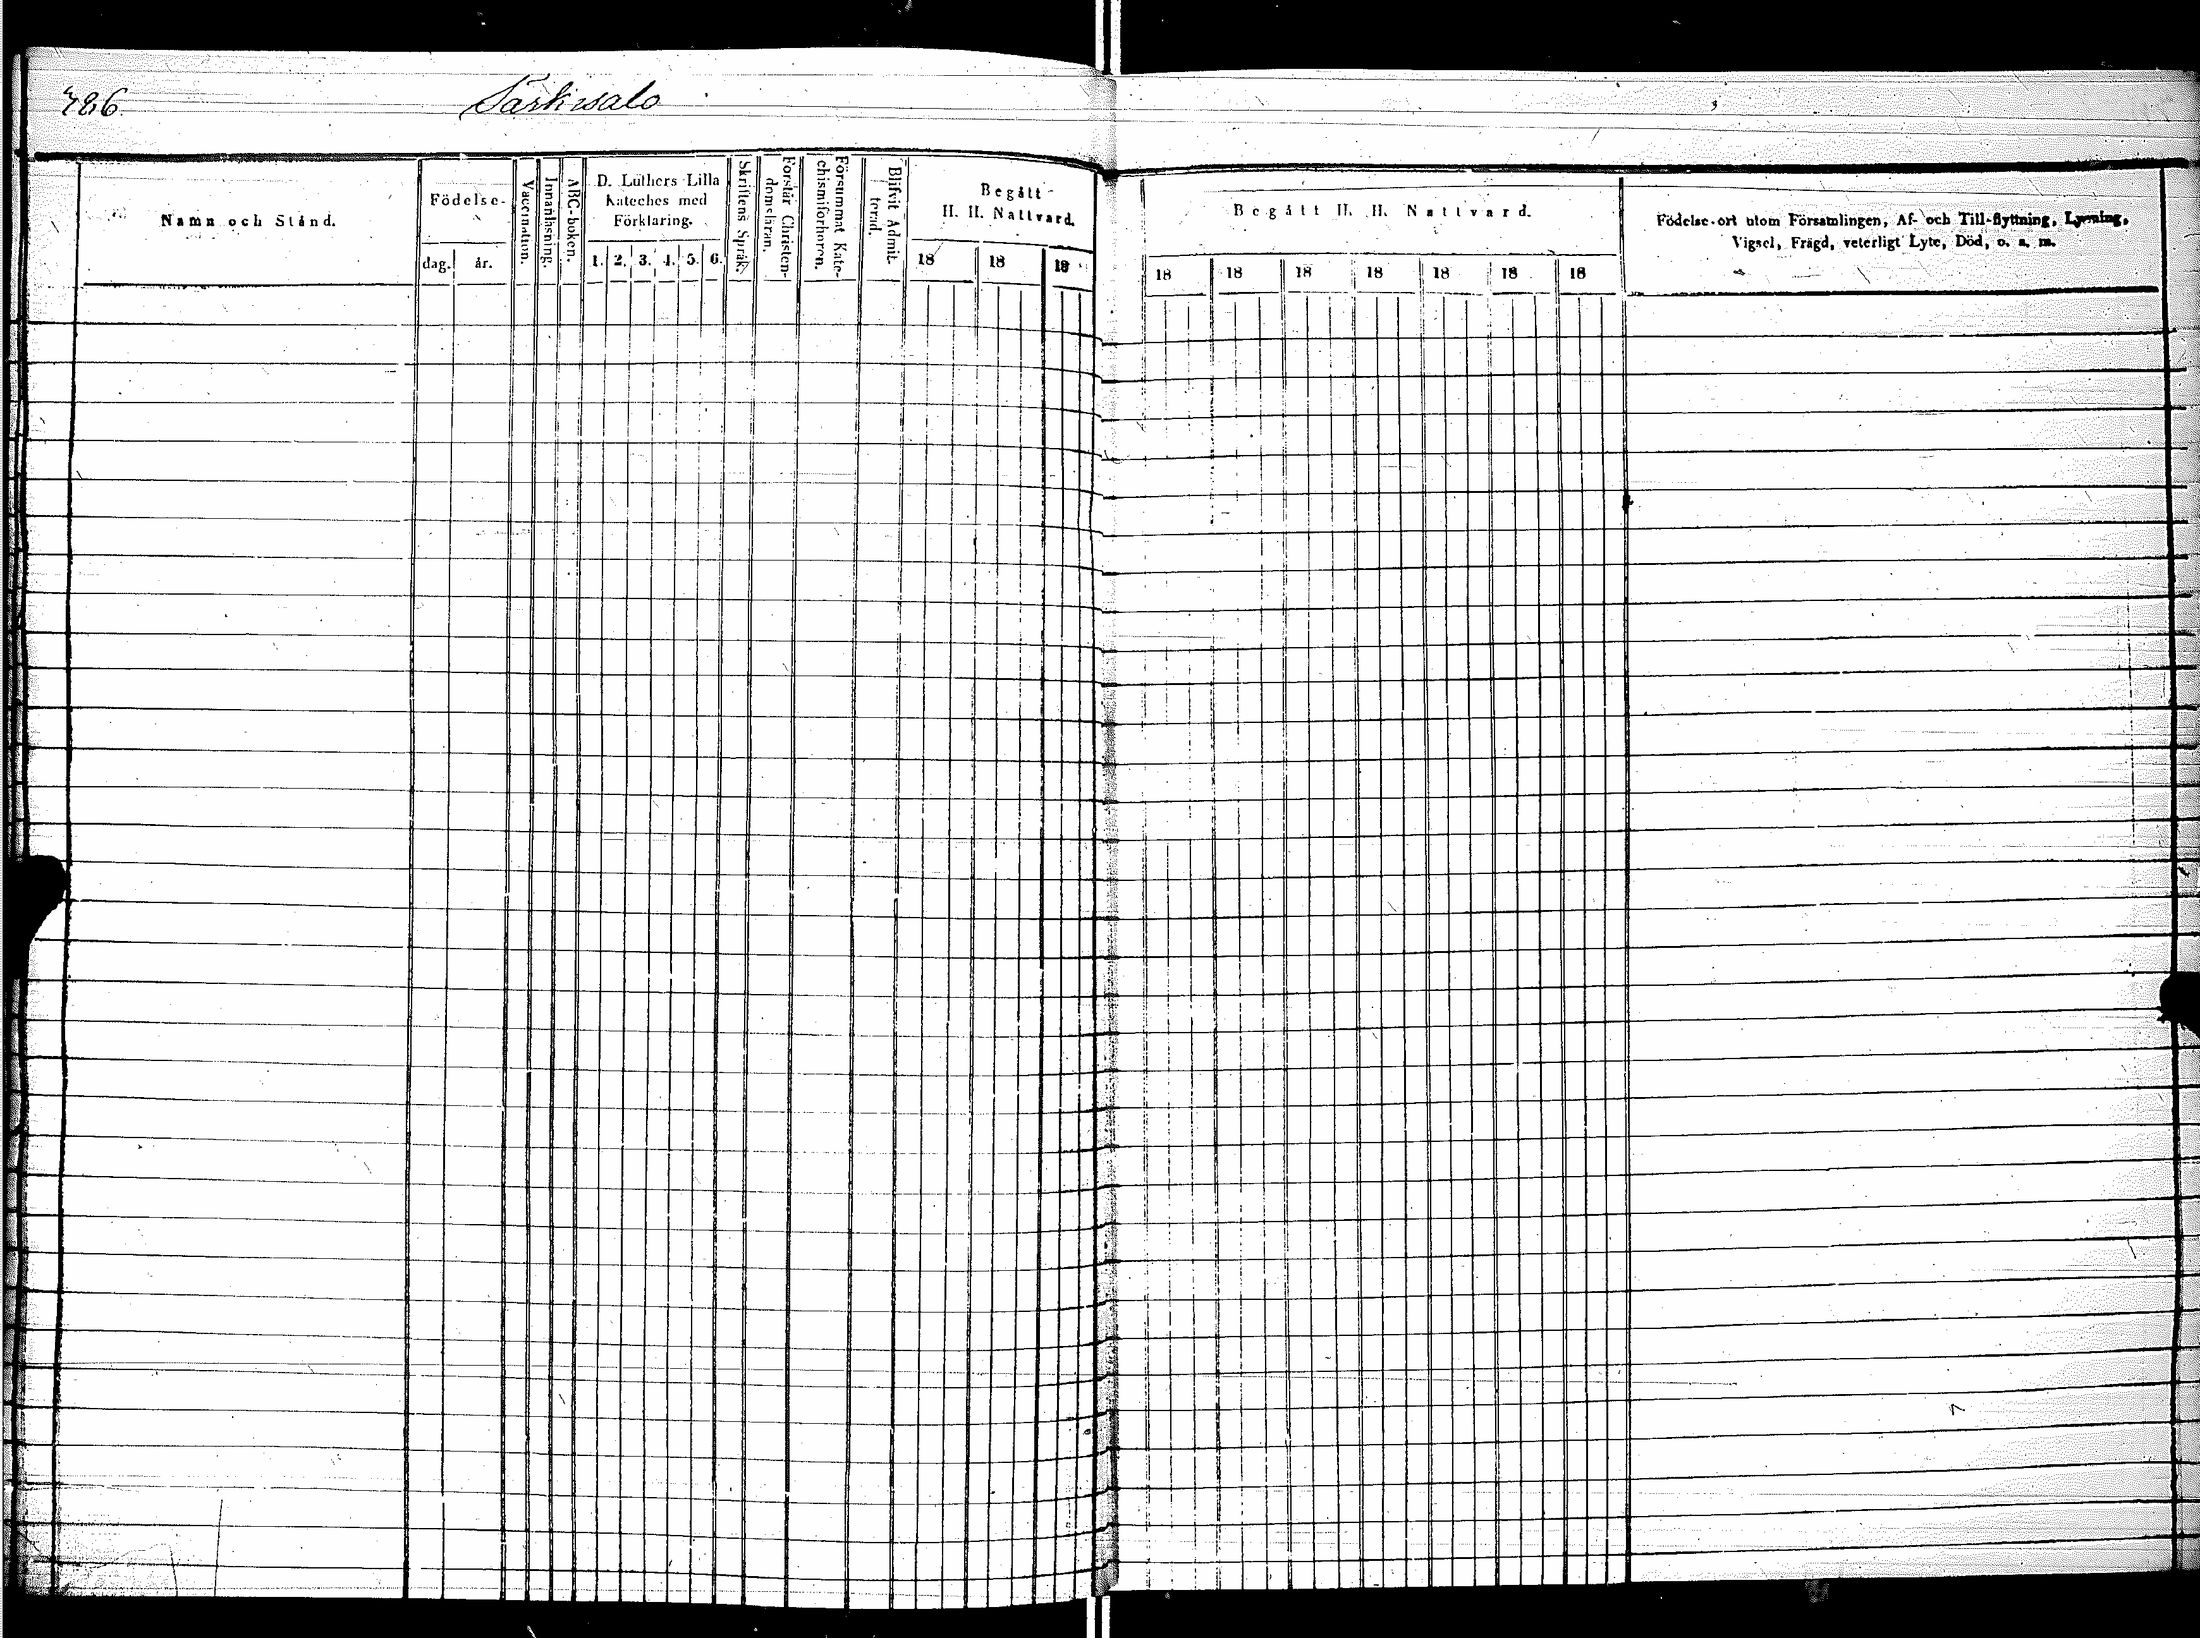 786.
Särkisalo
Namn och Stånd.
Födelse-
dag. år.
Vaccination.
Innanläsning.
ABC-boken.
D. Luthers Lilla
Kateches med
Förklaring.
1. 2. 3. 4. 5. 6.
Skriftens Språk.
Förstår Christen-
domsläran.
Försummat Kate-
chismiförhören.
Blifvit Admit-
terad.
Begått
H. H. Nattvard.
18 18 18
Begått H. H. Nattvard.
18 18 18 18 18 18 18
Födelse-ort utom Församlingen, Af- och Till-flyttning, Lysning,
Vigsel, Frägd, veterligt Lyte, Död, o. s. m.